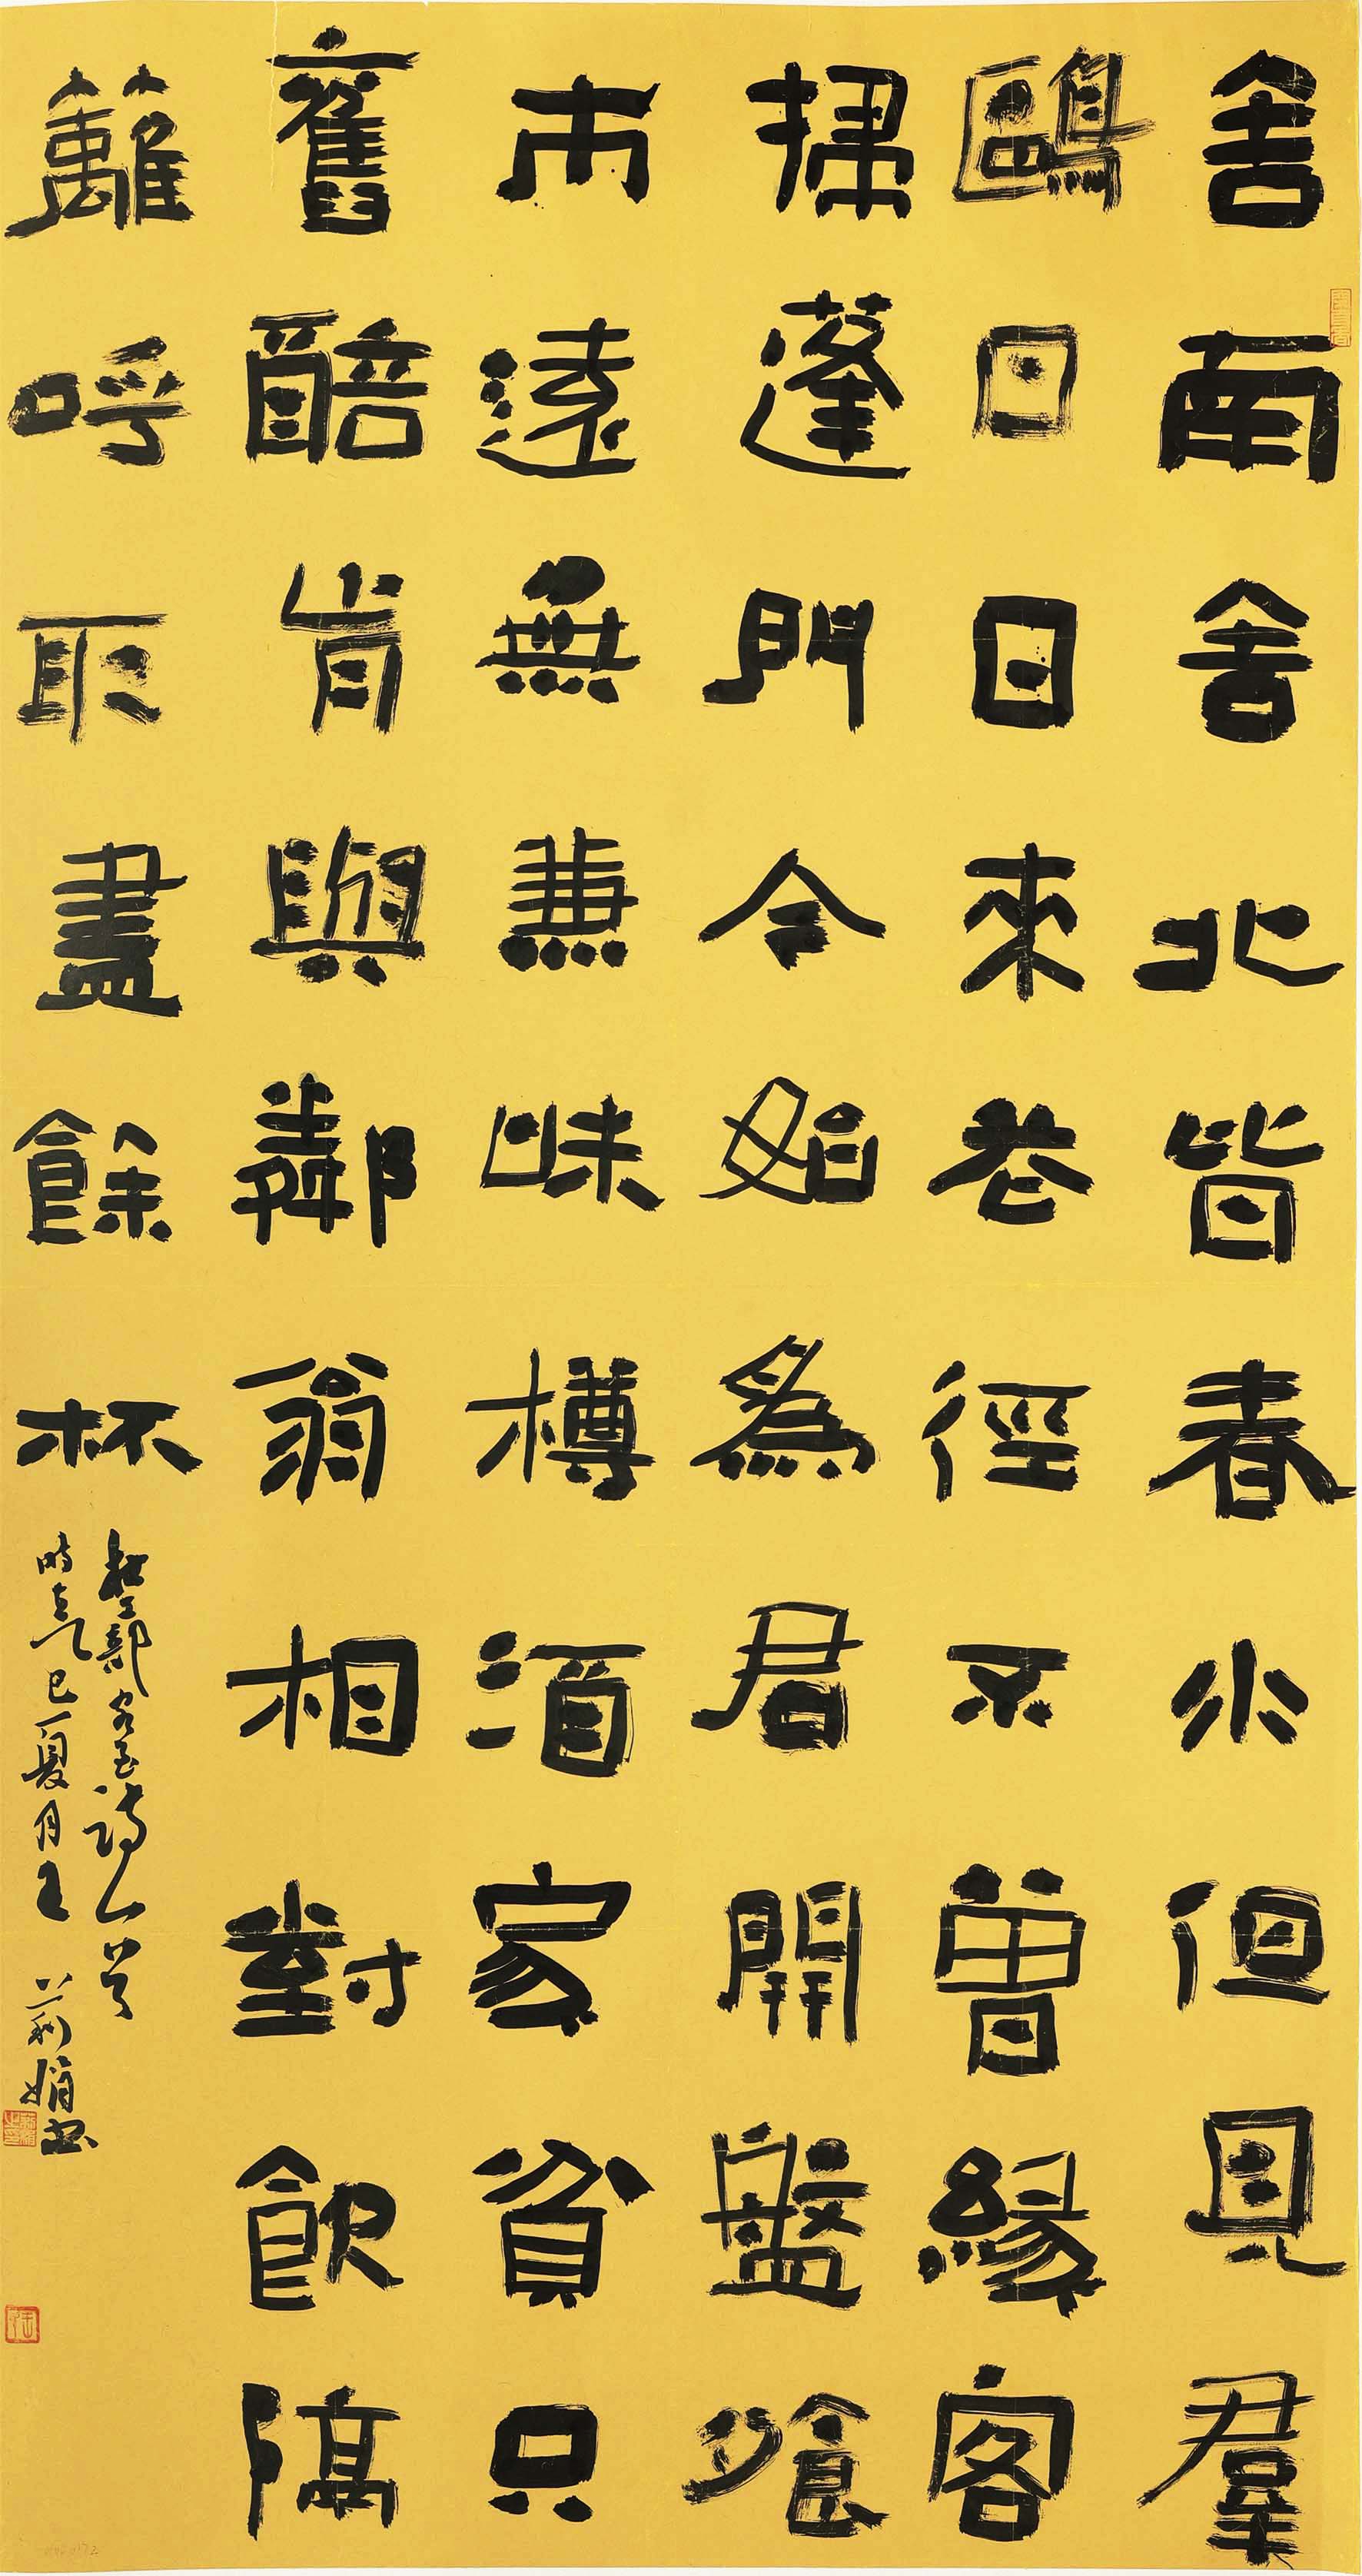 舍南舍北皆春水但見羣
鷗日日來花徑不曾緣客
掃蓬門今始為君開盤飧
市遠無蒹味樽酒家貧只
舊醅肯與鄰翁相對飲隔
籬呼取盡餘杯
杜工部客至詩一首
時在乙巳夏月王莉娟書